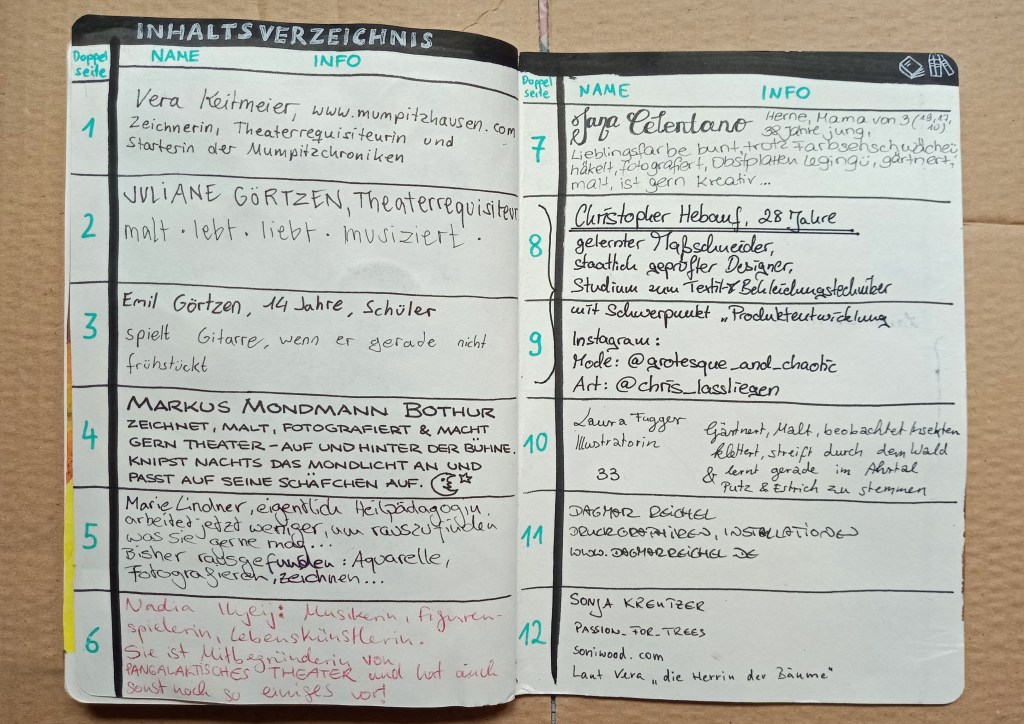 INHALTSVERZEICHNIS
Doppel
seite
NAME INFO
1
Vera Keitmeier, www.mumpitzhausen.com
Zeichnerin, Theaterrequisiteurin und
Starterin der Mumpitzchroniken
2
JULIANE GÖRTZEN, Theaterrequisiteur
malt · lebt · liebt · musiziert ·
3
Emil Görtzen, 14 Jahre, Schüler
spielt Gitarre, wenn er gerade nicht
frühstückt
4
MARKUS MONDMANN BOTHUR
ZEICHNET, MALT, FOTOGRAFIERT & MACHT
GERN THEATER – AUF UND HINTER DER BÜHNE.
KNIPST NACHTS DAS MONDLICHT AN UND
PASST AUF SEINE SCHÄFCHEN AUF.
5
Marie Lindner, eigentlich Heilpädagogin,
arbeitet jetzt weniger, um rauszufinden
was sie gerne mag...
Bisher rausgefunden: Aquarelle,
Fotografieren, zeichnen...
6
Nadia Ihjeij: Musikerin, Figuren-
spielerin, Lebenskünstlerin.
Sie ist Mitbegründerin von
PANGALAKTISCHES THEATER und hat auch
sonst noch so einiges vor!
Doppel
seite
NAME INFO
7
Celentano Herne, Mama von 3 (19, 17, 10)
38 Jahre jung,
Lieblingsfarbe bunt, trotz Farbsenschwäche,
häkelt, fotografiert, Obstplaten Legingü, gärtnert,
malt, ist gern kreativ...
8
Christopher Hebauf, 28 Jahre
gelernter Maßschneider,
staatlich geprüfter Designer,
Studium zum Textil & Bekleidungstechniker
9
mit Schwerpunkt „Produktentwicklung
Instagram:
Mode: @grotesque_and_chaotic
Art: @chris_lassliegen
10
Laura Fugger
Illustratorin
33
Gärtnert, Malt, beobachtet Insekten
klettert, streift durch dem Wald
& lernt gerade im Ahrtal
Putz & Estrich zu stemmen
11
DAGMAR REICHEL
DRUCKGRAPHIKEN, INSTALLATIONEN
WWW.DAGMARREICHEL.DE
12
SONJA KREUTZER
PASSION_FOR_TREES
soniwood.com
Laut Vera „die Herrin der Bäume"